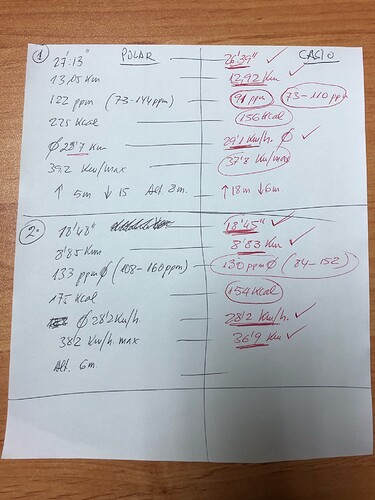 POLAR CASIO
1
27'13" 26'39" ✓
13,05 Km 12,92 Km ✓
122 ppm (73-144ppm) 91 ppm 73-110ppm
225 Kcal 156Kcal
Ø 28'7 Km 29'1 Km/h. Ø ✓
39,2 Km/max 37'8 Km/max
↑ 5m ↓ 15 Alt 8m. ↑18m ↓6m
2
18'48" 18'45" ✓
8'85Km 8'83 Km ✓
133 ppm Ø (108-160ppm) 130 ppm Ø (84-152)
175 Kcal 154Kcal
Ø 28'2 Km/h 28'2 Km/h. ✓
38'2 Km/h. max 36'9 Km ✓
Alt. 6m.